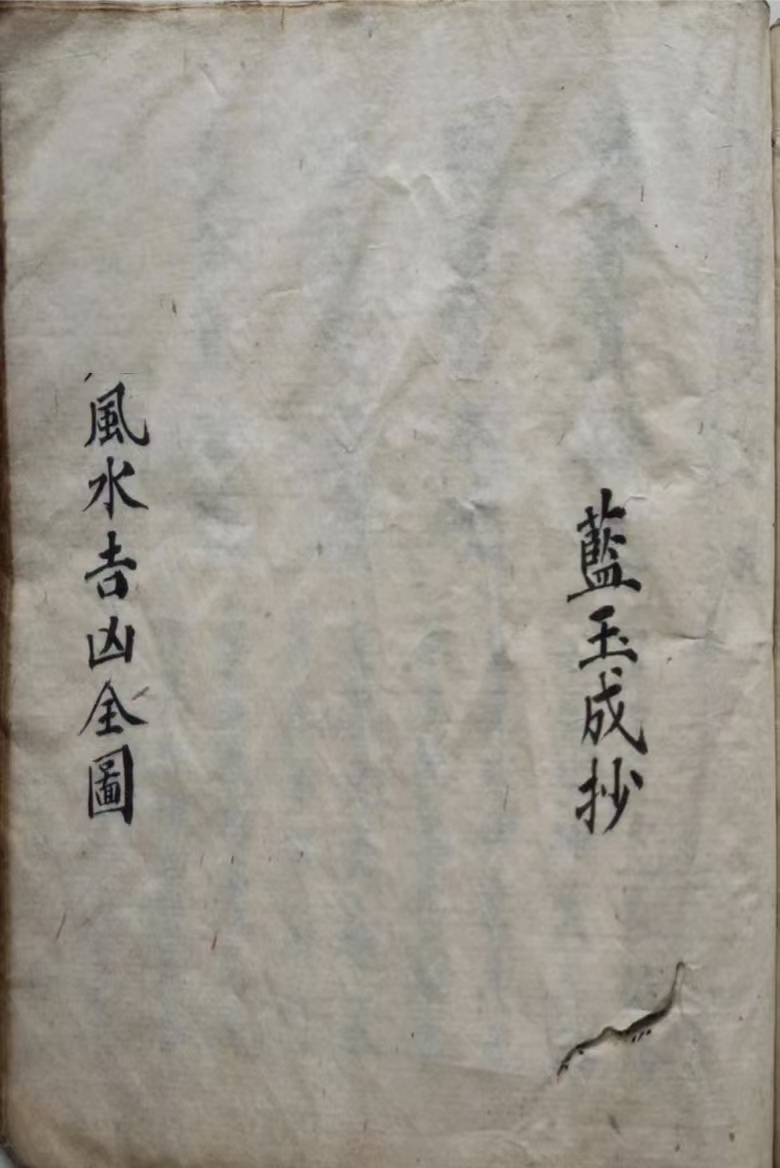 藍玉成抄
風水吉凶全圖